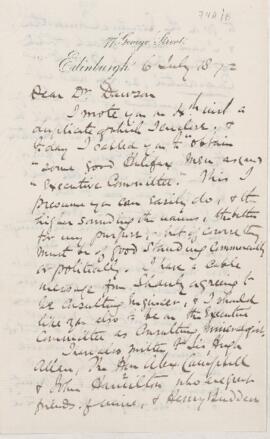 77 George Street.
Edinburgh 6 July 187
Dear Dr Dawson
I wrote you on 4th inst a
duplicate of which I enclose, &
today I cabled you to "obtain
"some good Halifax men as
"Executive Committee". This I
presume you can easily do, & the
higher sounding the names, the better
for my purpose, but of course they
must be of good standing Commercially
or politically. I have a Cable
message from agreeing to
be Consulting Engineer, & I should
like you also to be on the Executive
Committee as Consulting Mineralogist.
I have also written to Sir Hugh
Allan, The Hon Alex Campbell
& John Hamilton who are great
friends of mine, & Henry